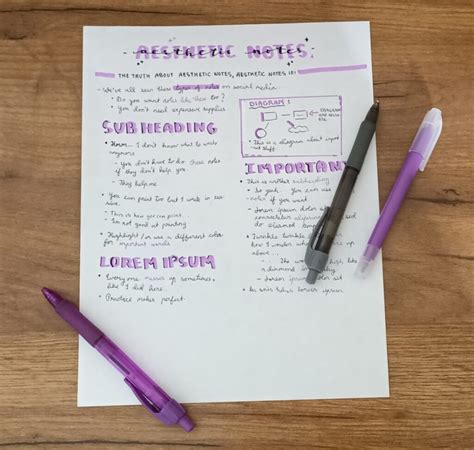 AESTHETIC NOTES.
THE TRUTH ABOUT AESTHETIC NOTES, AESTHETIC NOTES 101
- We've all seen these types of notes on social media
• Do you want notes like these too?
• You don't need expensive supplies
SUBHEADING
• Hmm... I don't know what to write
anymore
- You don't have to do these notes
if they don't help you.
- They help me
• You can print too but I write in
- This is how you can print.
- I'm not good at printing
• Highlight / or use a different color
for important words
LOREM IPSUM
• Everyone messes up sometimes,
like I did here...
• Practice makes perfect.
DIAGRAM:
DIAGRAM
• This is a diagram about
stuff
IMPORTANT
• This is another subheading
• So yeah.. You can use
notes if you want
- Lorem ipsum dolor
consectetur
do eiusmod
• Twinkle twinkle
how I wonder
about...
- ... The
diamond in
- Lorem ipsum dolor sit
lorem ipsum